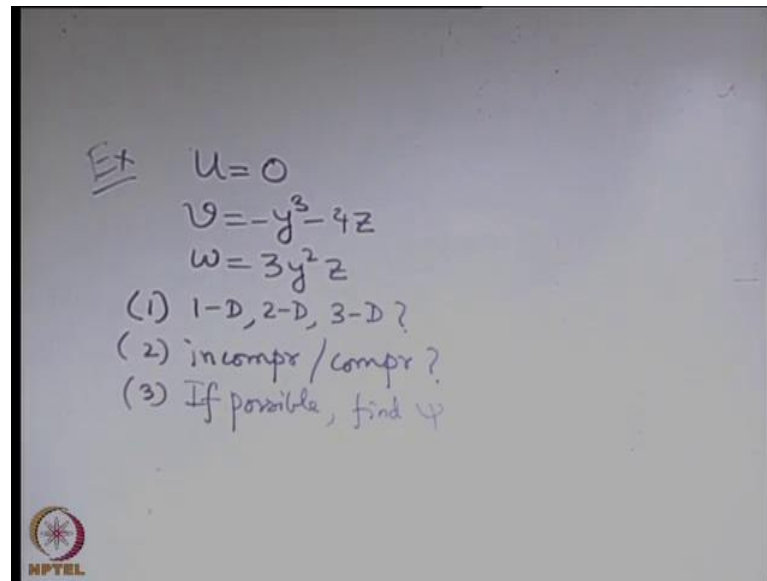 Ex u = 0
v = -y³ - 4z
w = 3y² z
(1) 1-D, 2-D, 3-D ?
(2) incompr / compr ?
(3) If possible, find ψ
NPTEL